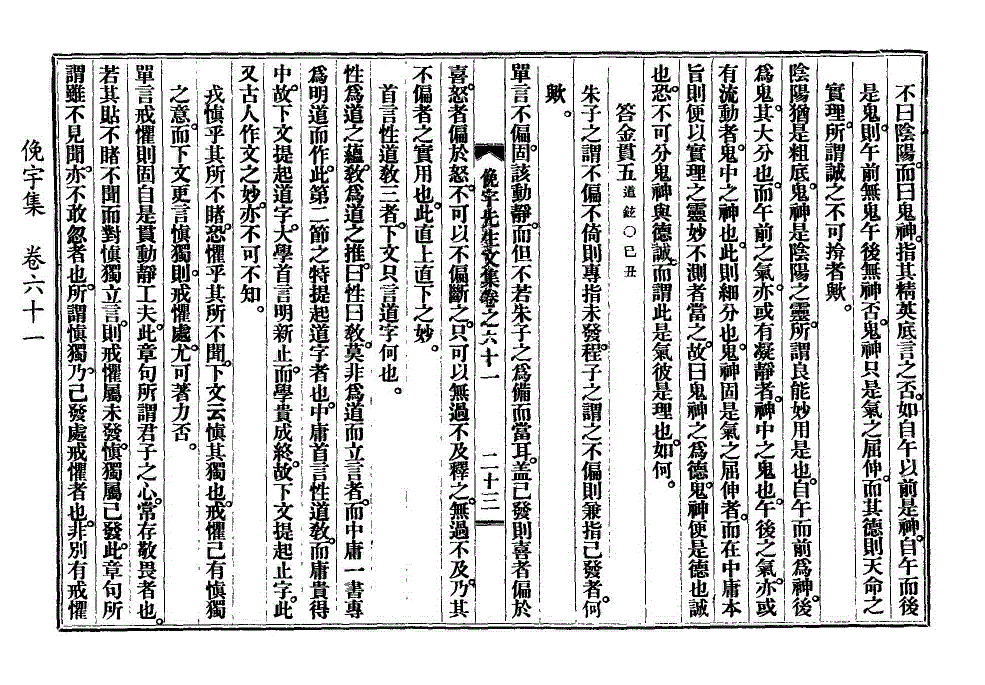 不曰陰陽而曰鬼神。指其精英底言之否。如自午以前是神。自午而後
是鬼。則午前無鬼。午後無神否。鬼神只是氣之屈伸。而其德則天命之
實理。所謂誠之不可揜者歟。
陰陽猶是粗底。鬼神是陰陽之靈。所謂良能妙用是也。自午而前爲神。後
爲鬼。其大分也。而午前之氣。亦或有凝靜者。神中之鬼也。午後之氣。亦或
有流動者。鬼中之神也。此則細分也。鬼神固是氣之屈伸者。而在中庸本
旨則便以實理之靈妙不測者當之。故曰鬼神之爲德。鬼神便是德也誠
也。恐不可分鬼神與德誠。而謂此是氣彼是理也。如何。
答金貫五道鉉○己丑
朱子之謂不偏不倚則專指未發。程子之謂之不偏則兼指已發者。何
歟。
單言不偏。固該動靜。而但不若朱子之爲備而當耳。盖已發則喜者偏於
俛宇先生文集卷之六十一 二十三
喜。怒者偏於怒。不可以不偏斷之。只可以無過不及釋之。無過不及。乃其
不偏者之實用也。此直上直下之妙。
首言性道敎三者。下文只言道字何也。
性爲道之蘊。敎爲道之推。曰性曰敎。莫非爲道而立言者。而中庸一書專
爲明道而作。此第二節之特提起道字者也。中庸首言性道敎。而庸貴得
中。故下文提起道字。大學首言明新止。而學貴成終。故下文提起止字。此
又古人作文之妙。亦不可不知。
戒愼乎其所不睹。恐懼乎其所不聞。下文云愼其獨也。戒懼已有愼獨
之意。而下文更言愼獨。則戒懼處。尤可著力否。
單言戒懼則固自是貫動靜工夫。此章句所謂君子之心。常存敬畏者也。
若其貼不睹不聞而對愼獨立言。則戒懼屬未發。愼獨屬已發。此章句所
謂雖不見聞。亦不敢忽者也。所謂愼獨。乃已發處戒懼者也。非別有戒懼
俛宇集 卷六十一